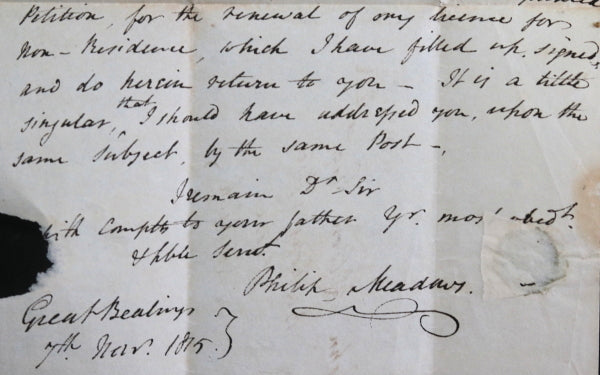 Petition, for the renewal of my licence for
Non-Residence, which I have filled up, signed,
and do herein return to you - It is a little
singular, that I should have addressed you, upon the
same Subject, by the same Post -,
I remain Dr Sir
with Compts to your father Yr. most obedt.
& hble Servt.
Philip Meadows.
Great Bealings
7th Novr. 1815.